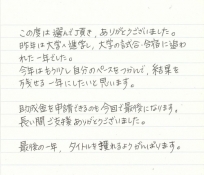 この度は選んで頂き、ありがとうございました。
昨年は大学へ進学し、大学の試合・合宿に追われた一年でした。
今年はもう少し自分のペースをつかんで、結果を残せる一年にしたいと思います。
助成金を申請できるのも今回で最後になります。
長い間ご支援ありがとうございました。
最後の一年、タイトルを獲れるようがんばります。